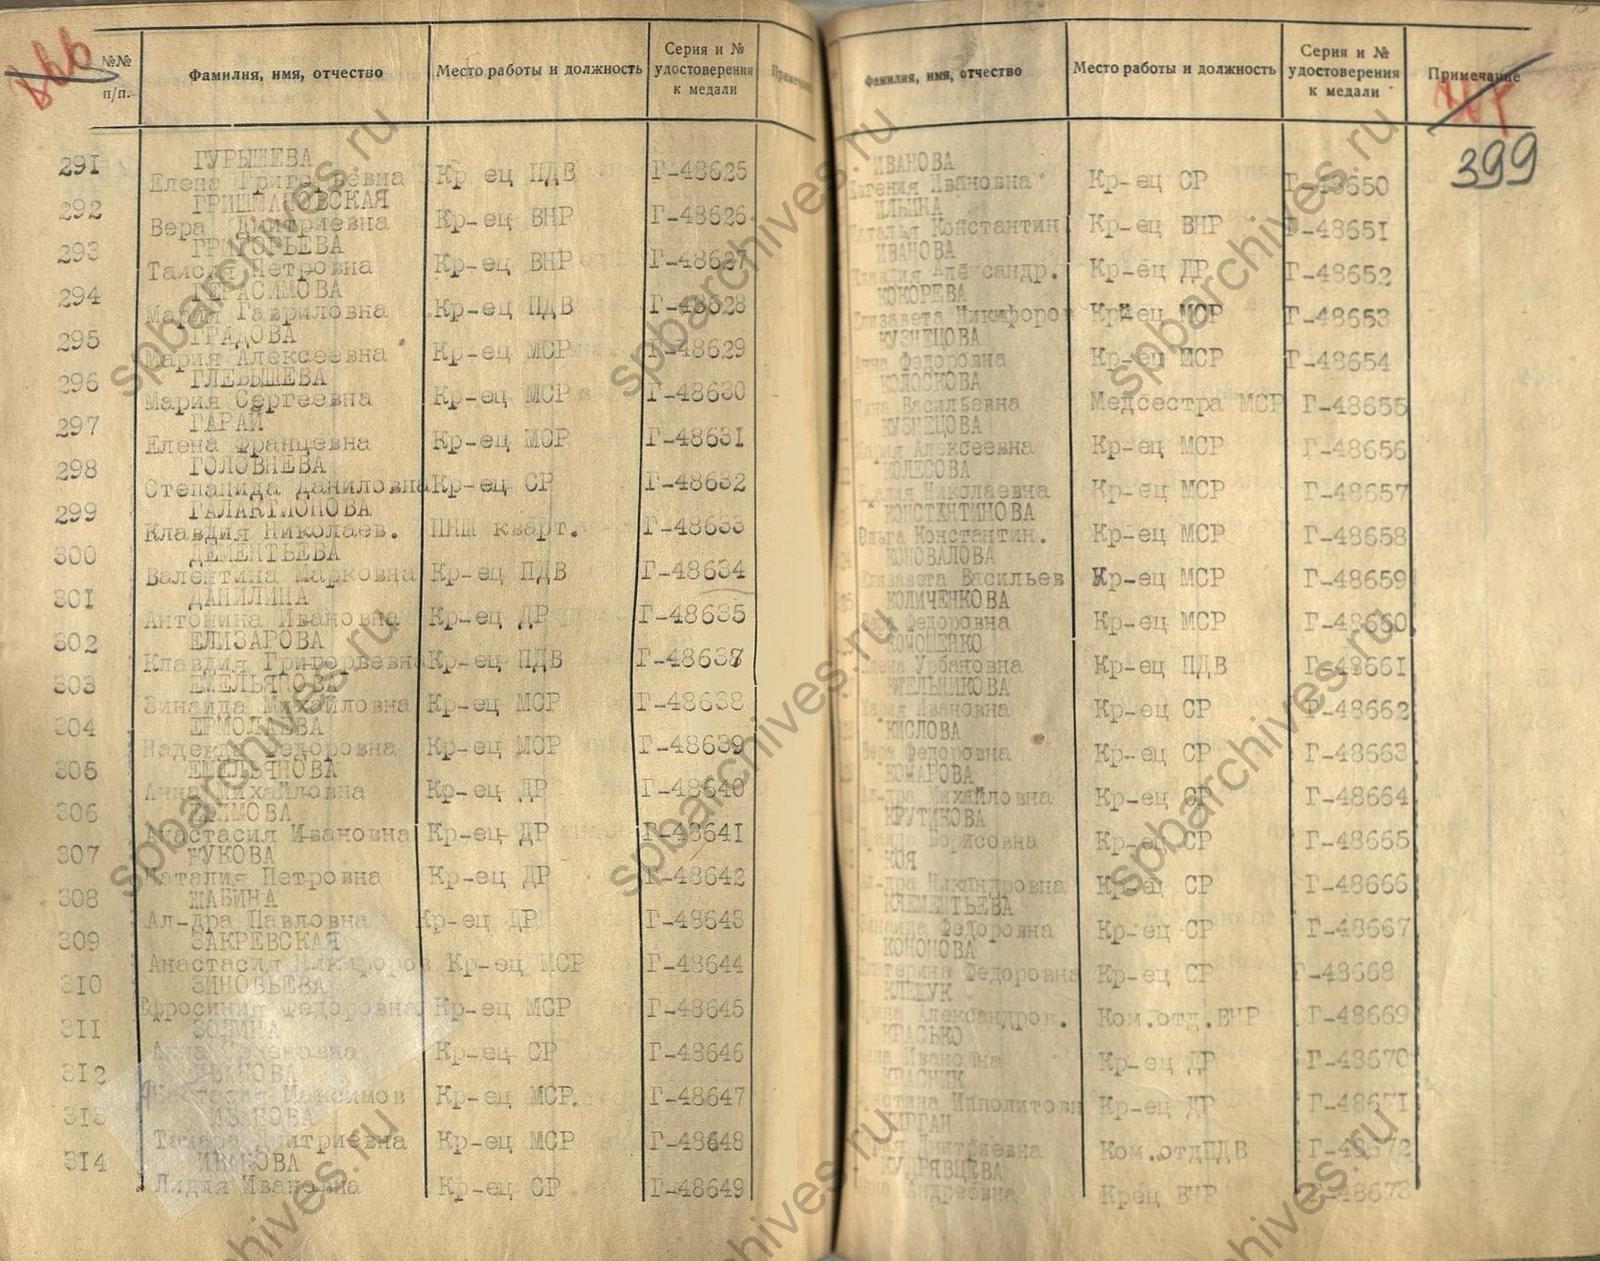 №№ п/п.
Фамилия, имя, отчество
Место работы и должность
Серия и № удостоверения к медали
291 ГУРЫШЕВА
Елена Григорьевна Кр ец ПДВ Г-48625
292 ГРИШМАНОВСКАЯ
Вера Дмитриевна Кр-ец ВНР Г-48626
293 ГРИГОРЬЕВА
Таисия Петровна Кр-ец ВНР Г-48627
294 ГЕРАСИМОВА
Мария Гавриловна Кр-ец ПДВ Г-48628
295 ГРАДОВА
Мария Алексеевна Кр-ец МСР Г-48629
296 ГЛЕБЫШЕВА
Мария Сергеевна Кр-ец МСР Г-48630
297 ГАРАЙ
Елена Францевна Кр-ец МСР Г-48631
298 ГОЛОВНЕВА
Степанида Даниловна Кр-ец СР Г-48632
299 ГАЛАКТИОНОВА
Клавдия Николаев. ПНШ кварт. Г-48633
300 ДЕМЕНТЬЕВА
Валентина Марковна Кр-ец ПДВ Г-48634
301 ДАНИЛИНА
Антонина Ивановна Кр-ец ДР Г-48635
302 ЕЛИЗАРОВА
Клавдия Григорьевна Кр-ец ПДВ Г-48637
303 ЕМЕЛЬЯНОВА
Зинаида Михайловна Кр-ец МСР Г-48638
304 ЕРМОЛАЕВА
Надежда Федоровна Кр-ец МСР Г-48639
305 ЕМЕЛЬЯНОВА
Анна Михайловна Кр-ец ДР Г-48640
306
Анастасия Ивановна Кр-ец ДР Г-48641
307 ЖУКОВА
Наталия Петровна Кр-ец ДР Г-48642
308 ЖАБИНА
Ал-дра Павловна Кр-ец ДР Г-48643
309 ЗАКРЕВСКАЯ
Анастасия Никифоров Кр-ец МСР Г-48644
310 ЗИНОВЬЕВА
Ефросиния Федоровна Кр-ец МСР Г-48645
311
Кр-ец СР Г-48646
312 ИВАНОВА
Максимов Кр-ец МСР. Г-48647
313 ИВАНОВА
Тамара Дмитриевна Кр-ец МСР Г-48648
314 ИВАНОВА
Лидия Ивановна Кр-ец СР Г-48649
Фамилия, имя, отчество
Место работы и должность
Серия и № удостоверения к медали
Примечание
399
ИВАНОВА
Евгения Ивановна Кр-ец СР Г-48650
ИЛЬИНА
Константин Кр-ец ВНР Г-48651
ИВАНОВА
Клавдия Александр. Кр-ец ДР Г-48652
КОКОРЕВА
Елизавета Никифоров Кр-ец МСР Г-48653
КУЗНЕЦОВА
Анна Федоровна Кр-ец МСР Г-48654
КОЛОСКОВА
Васильевна Медсестра МСР Г-48655
КУЗНЕЦОВА
Мария Алексеевна Кр-ец МСР Г-48656
КОЛЕСОВА
Николаевна Кр-ец МСР Г-48657
КОНСТАНТИНОВА
Ольга Константин. Кр-ец МСР Г-48658
КОНОВАЛОВА
Елизавета Васильев Кр-ец МСР Г-48659
КОЛИЧЕНКОВА
Федоровна Кр-ец МСР Г-48660
КОНОШЕНКО
Елена Урбановна Кр-ец ПДВ Г-48661
КОТЕЛЬНИКОВА
Мария Ивановна Кр-ец СР Г-48662
КИСЛОВА
Вера Федоровна Кр-ец СР Г-48663
КОМАРОВА
Ал-дра Михайловна Кр-ец СР Г-48664
КРУТИКОВА
Борисовна Кр-ец СР Г-48665
КОЯ
Ал-дра Никандровна Кр-ец СР Г-48666
КЛЕМЕНТЬЕВА
Зинаида Федоровна Кр-ец СР Г-48667
КОНОНОВА
Екатерина Федоровна Кр-ец СР Г-48668
КЛЕЩУК
Александров. Ком.отд.ВНР Г-48669
КРАСЬКО
Ивановна Кр-ец ДР Г-48670
КРАСНИК
Ипполитовн Кр-ец ДР Г-48671
Дмитриевна Ком.отдПДВ Г-48672
КУДРЯВЦЕВА
Андреевна Крец ВНР Г-48673
spbarchives.ru